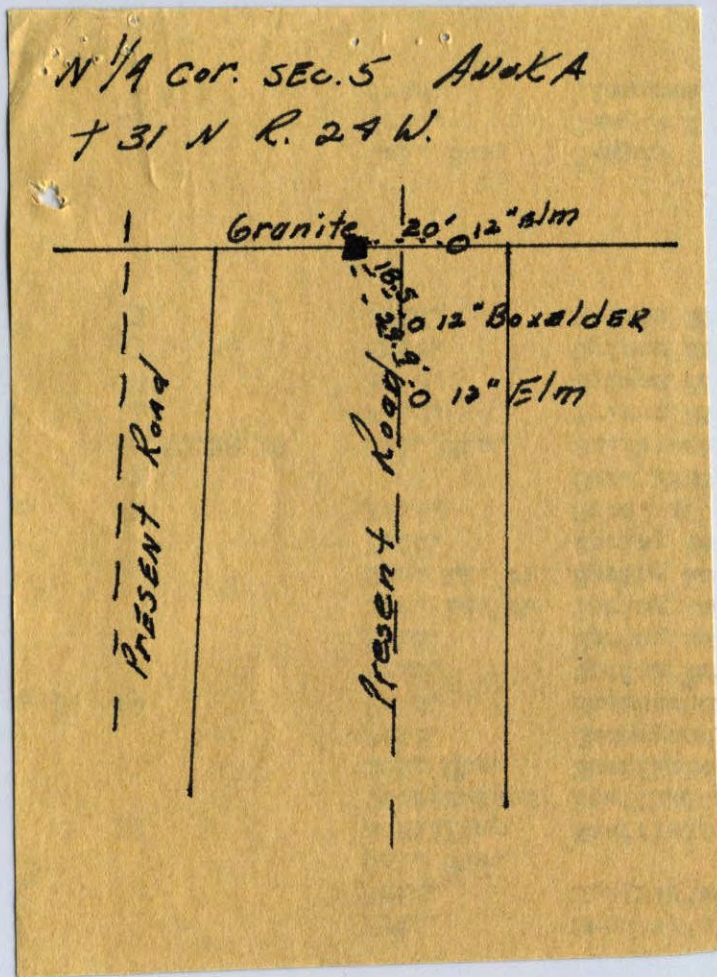 N 1/4 Cor. SEC. 5 ANOKA
T 31 N R. 24 W.
Granite 20' 12" Elm
18.5
12" BoxEldER
29.9
12" Elm
PrESENT Road
Present Road